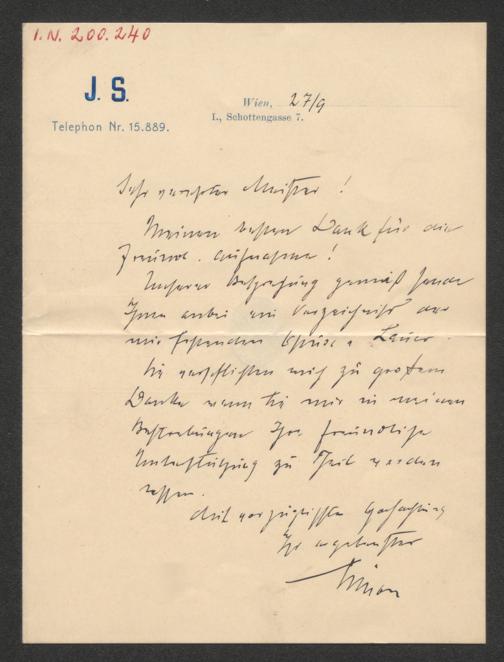 I.N. 200.240
J. S.
Telephon Nr. 15.889.
Wien, 27/9
I., Schottengasse 7.
Sehr verehrter Meister!
Meinen besten Dank für die
freundl. Aufnahme!
Unserer Besprechung gemäß sende
Ihnen anbei ein Verzeichniß der
mir fehlenden Lanner.
Sie verpflichten mich zu großem
Danke wenn Sie mir in meinen
Bestrebungen Ihre freundliche
Unterstützung zu Theil werden
lassen.
Mit vorzüglichster Hochachtung
Ihr ergebenster
Simon